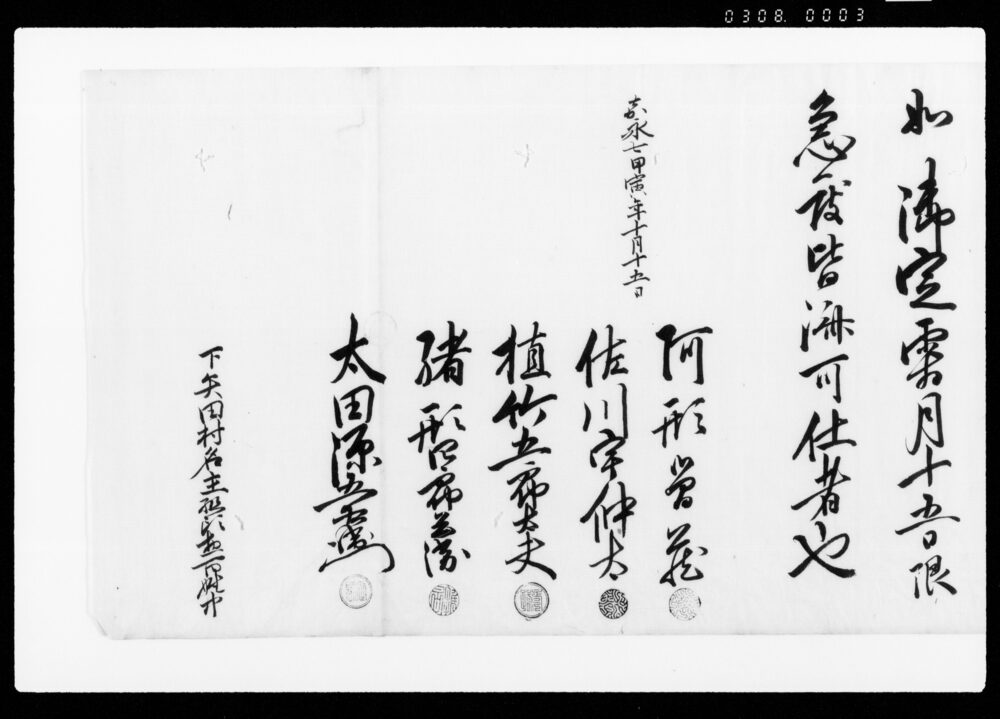 0308. 0003
如 御定霜月十五日限
急度皆済可仕者也
嘉永七甲寅年十月十五日
阿形曽蔵
佐川宇仲太
植竹五郎太夫
緒形四郎兵衛
太田源五右衛門
下矢田村名主組頭惣百姓中